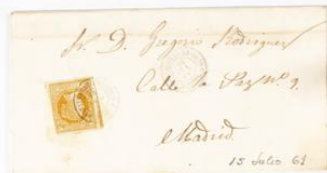 Sr. D. Gregorio Rodriguez
Calle la Paz Nº 9.
Madrid.
15 Julio 61